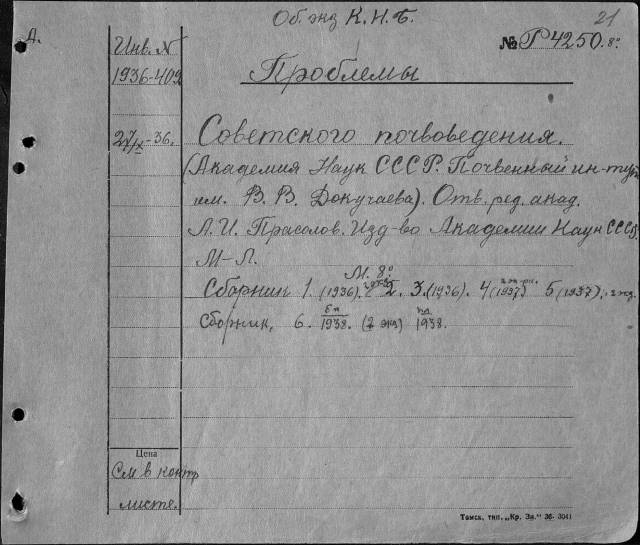 Об. экз К.Н.Б.
21
Д.
Инв. N
№ Р4250.8°
1936-402
Проблемы
27/IX-36.
Советского почвоведения.
(Академия Наук СССР. Почвенный ин-тут
им. В. В. Докучаева). Отв. ред. акад.
Л. И. Прасолов. Изд-во Академии Наук СССР,
М-Л.
М. 8°
Сборник 1. (1936). 2. 3. (1936). 4 (1937) 5 (1937).
Сборник, 6. 1938. (2 экз) 1938.
Цена
См в контр
листе.
Томск, тип. „Кр. Зн.“ 36- 3041